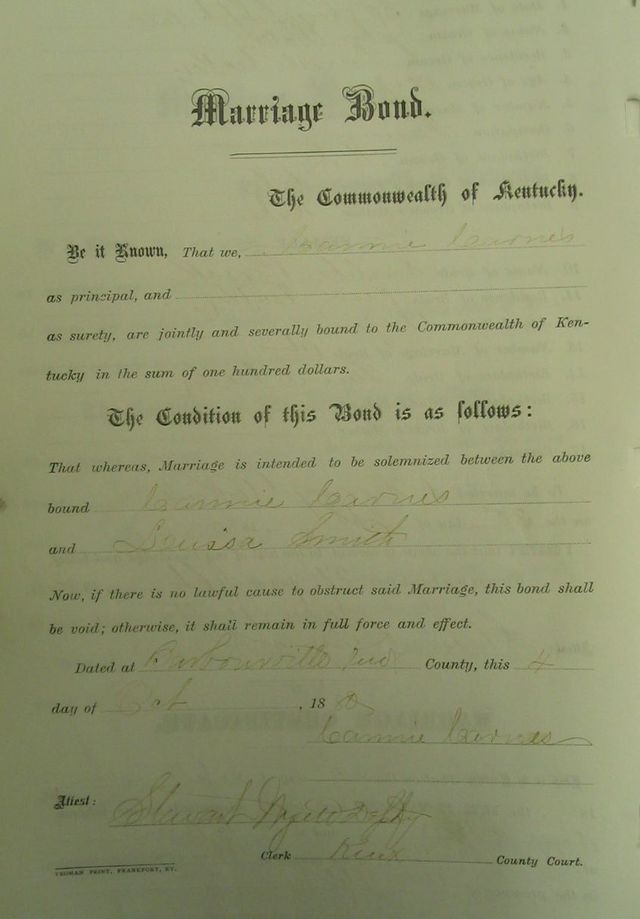 Marriage Bond.
The Commonwealth of Kentucky.
Be it Known, That we, Cannie Carnes
as principal, and
as surety, are jointly and severally bound to the Commonwealth of Ken-
tucky in the sum of one hundred dollars.
The Condition of this Bond is as follows:
That whereas, Marriage is intended to be solemnized between the above
bound Cannie Carnes
and Smith
Now, if there is no lawful cause to obstruct said Marriage, this bond shall
be void; otherwise, it shall remain in full force and effect.
Dated at Barbourville County, this 4
day of Oct , 18
Cannie Carnes
Attest:
Stewart
Clerk Knox County Court.
YEOMAN PRINT, FRANKFORT, KY.